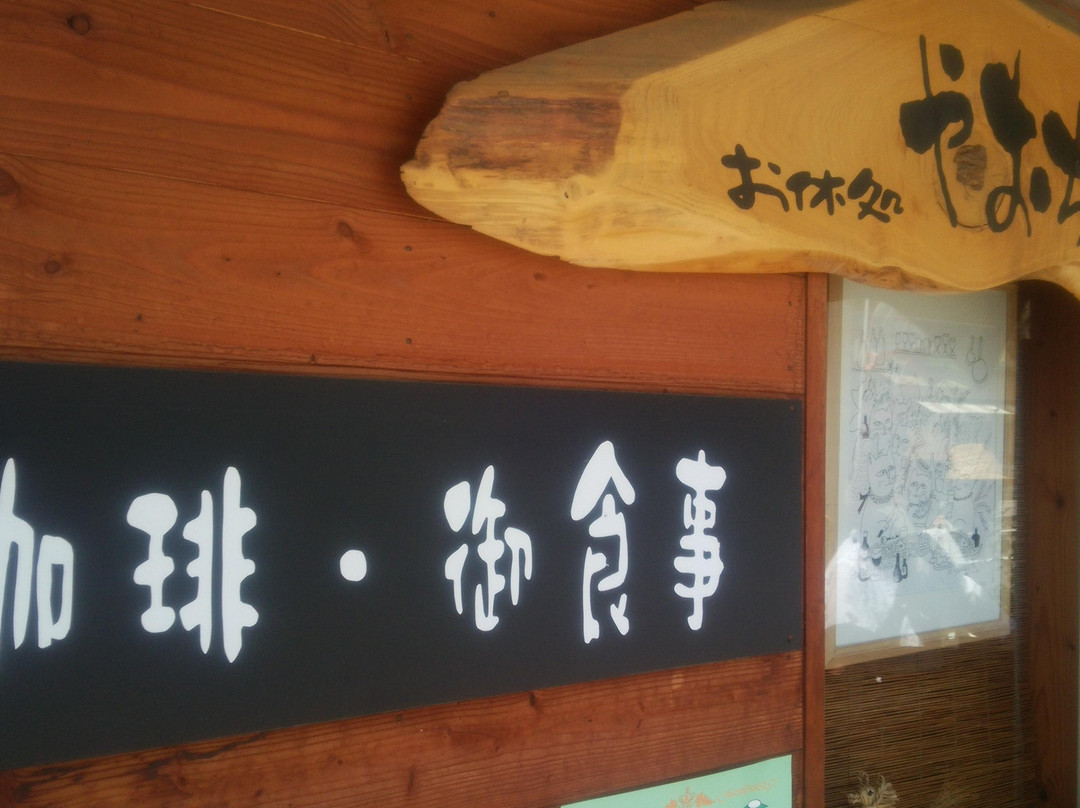 お休処
やおち
珈琲・御食事